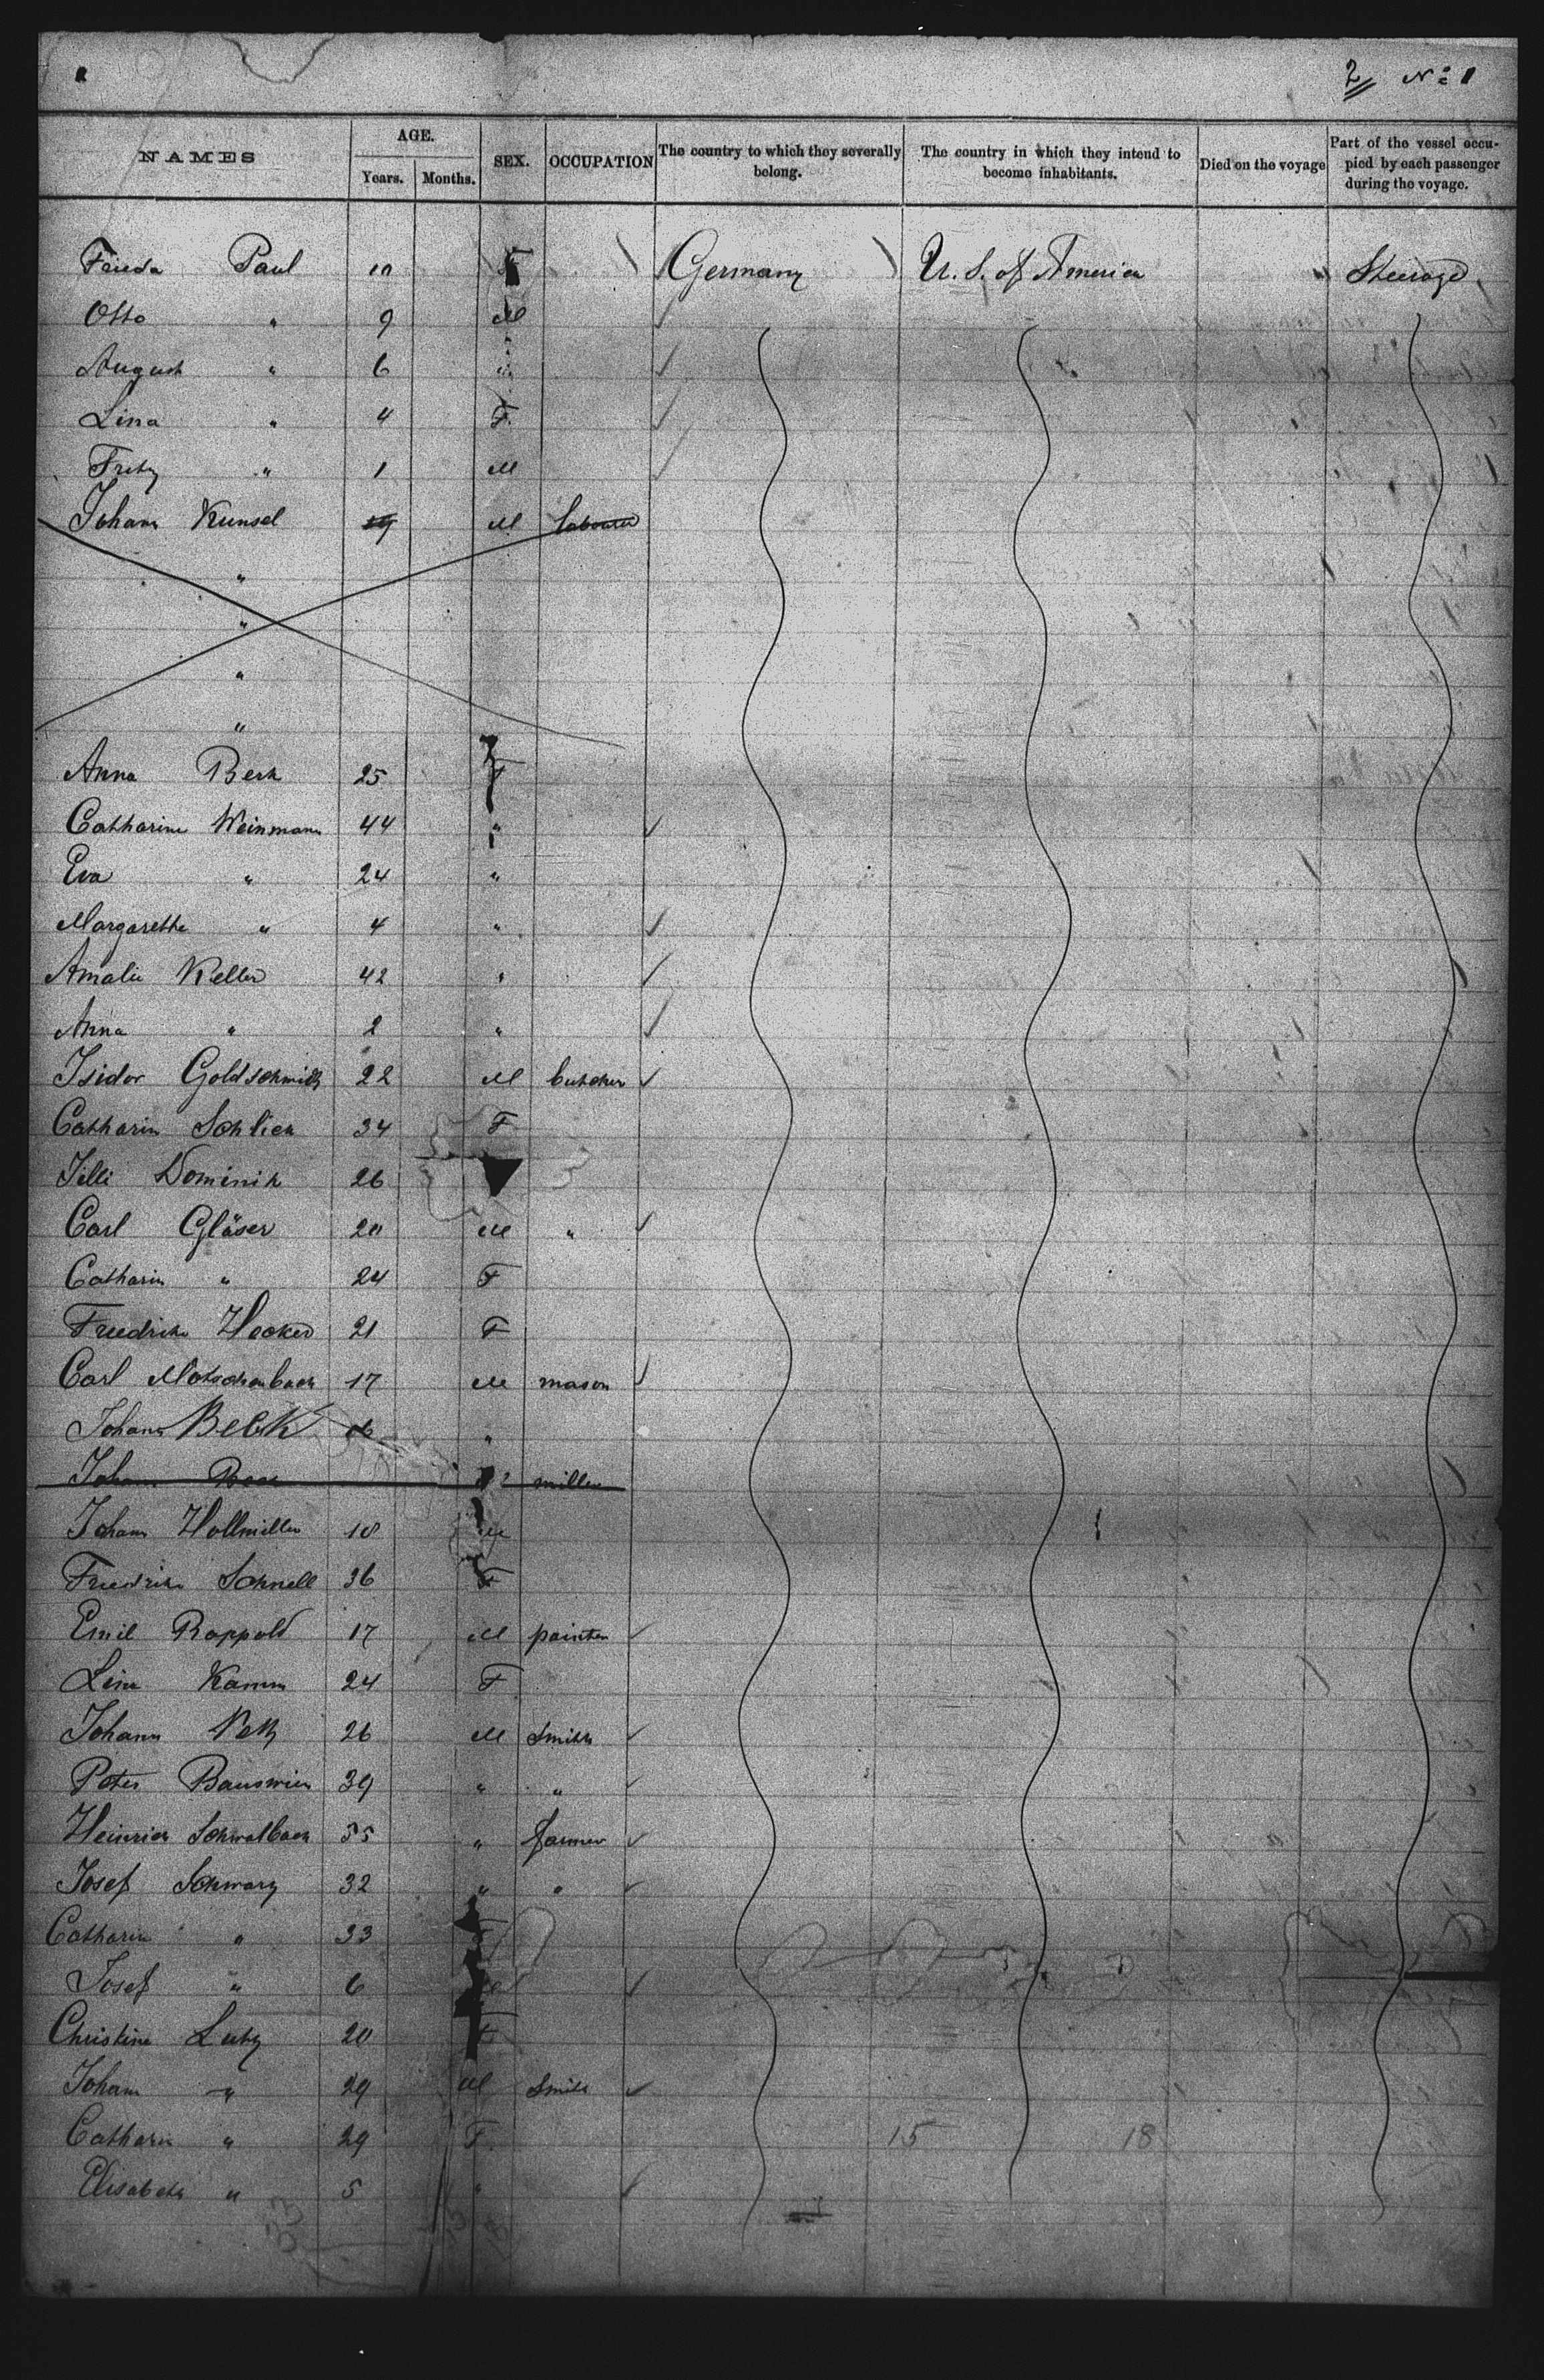 2 No 1
NAMES AGE. Years. Months. SEX. OCCUPATION The country to which they severally belong. The country in which they intend to become inhabitants. Died on the voyage Part of the vessel occupied by each passenger during the voyage.
Frieda Paul 10 F Germany U. S. of America Steerage
Otto " 9 M
August " 6 "
Lina " 4 F
Fritz " 1 M
Johann Kunsel 19 M labourer
"
"
"
"
Anna Berk 25 F
Catharine Weinmann 44 "
Eva " 24 "
Margarethe " 4 "
Amalie Keller 42 "
Anna " 2 "
Isidor Goldschmidt 22 M butcher
Catharin Schlick 34 F
Dominik 26
Carl Gläser 20 M "
Catharin " 24 F
Friedrike Hecker 21 F
Carl Motschenbach 17 M mason
Johann "
Johann miller
Johann Hollmiller 18 M
Friedrike Schnell 36 F
Emil Rappold 17 M painter
Line Kamm 24 F
Johann 26 M Smith
Peter 39 " "
Heinrich Schwalbach 55 " farmer
Josef Schwarz 32 " "
Catharin " 33 F
Josef " 6 M
Christine Lutz 20 F
Johann " 29 M Smith
Catharin " 29 F 15 18
Elisabeth " 5 "
33